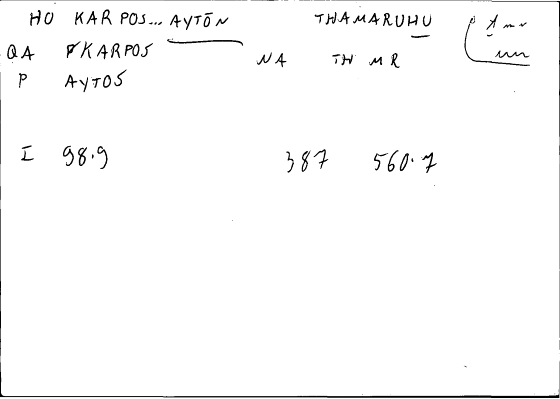 HO KARPOS... AYTŌN THAMARUHU
QA KARPOS NA TH M R
P AYTOS
I 98.9 387 560.7